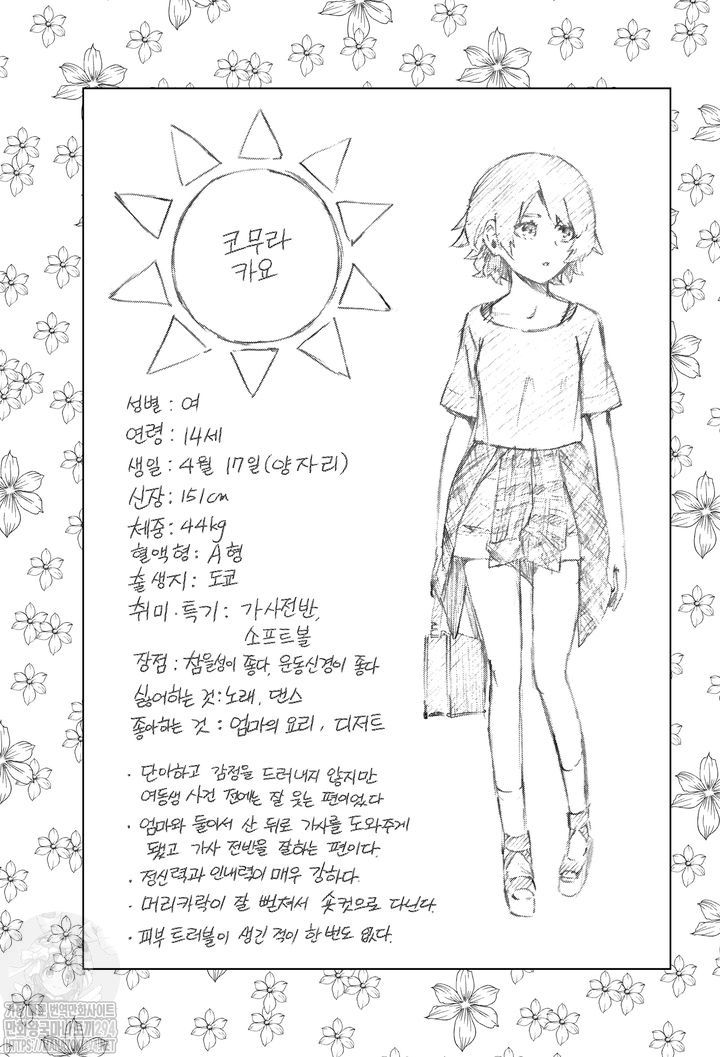 코무라
카요
성별 : 여
연령 : 14세
생일 : 4월 17일(양자리)
신장 : 151cm
체중 : 44kg
혈액형 : A형
출생지 : 도쿄
취미·특기 : 가사전반,
소프트볼
장점 : 참을성이 좋다, 운동신경이 좋다
싫어하는 것 : 노래, 댄스
좋아하는 것 : 엄마의 요리, 디저트
· 단아하고 감정을 드러내지 않지만
여동생 사건 전에는 잘 웃는 편이었다
· 엄마와 둘이서 산 뒤로 가사를 도와주게
됐고 가사 전반을 잘하는 편이다.
· 정신력과 인내력이 매우 강하다.
· 머리카락이 잘 뻗쳐서 숏컷으로 다닌다.
· 피부 트러블이 생긴 적이 한번도 없다.
번역만화사이트